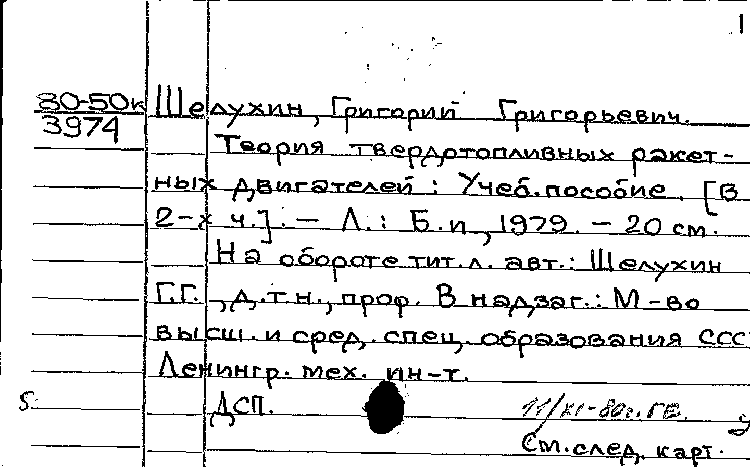 1
80-50к Шелухин, Григорий Григорьевич.
3974
Теория твердотопливных ракет-
ных двигателей : Учеб. пособие. [В
2-х ч.]. — Л. : Б. и., 1979. — 20 см.
На обороте тит. л. авт.: Шелухин
Г.Г., д.т.н., проф. В надзаг.: М-во
высш. и сред. спец. образования ССС
Ленингр. мех. ин-т.
5 ДСП. 11/XI-80г.
См. след. карт.